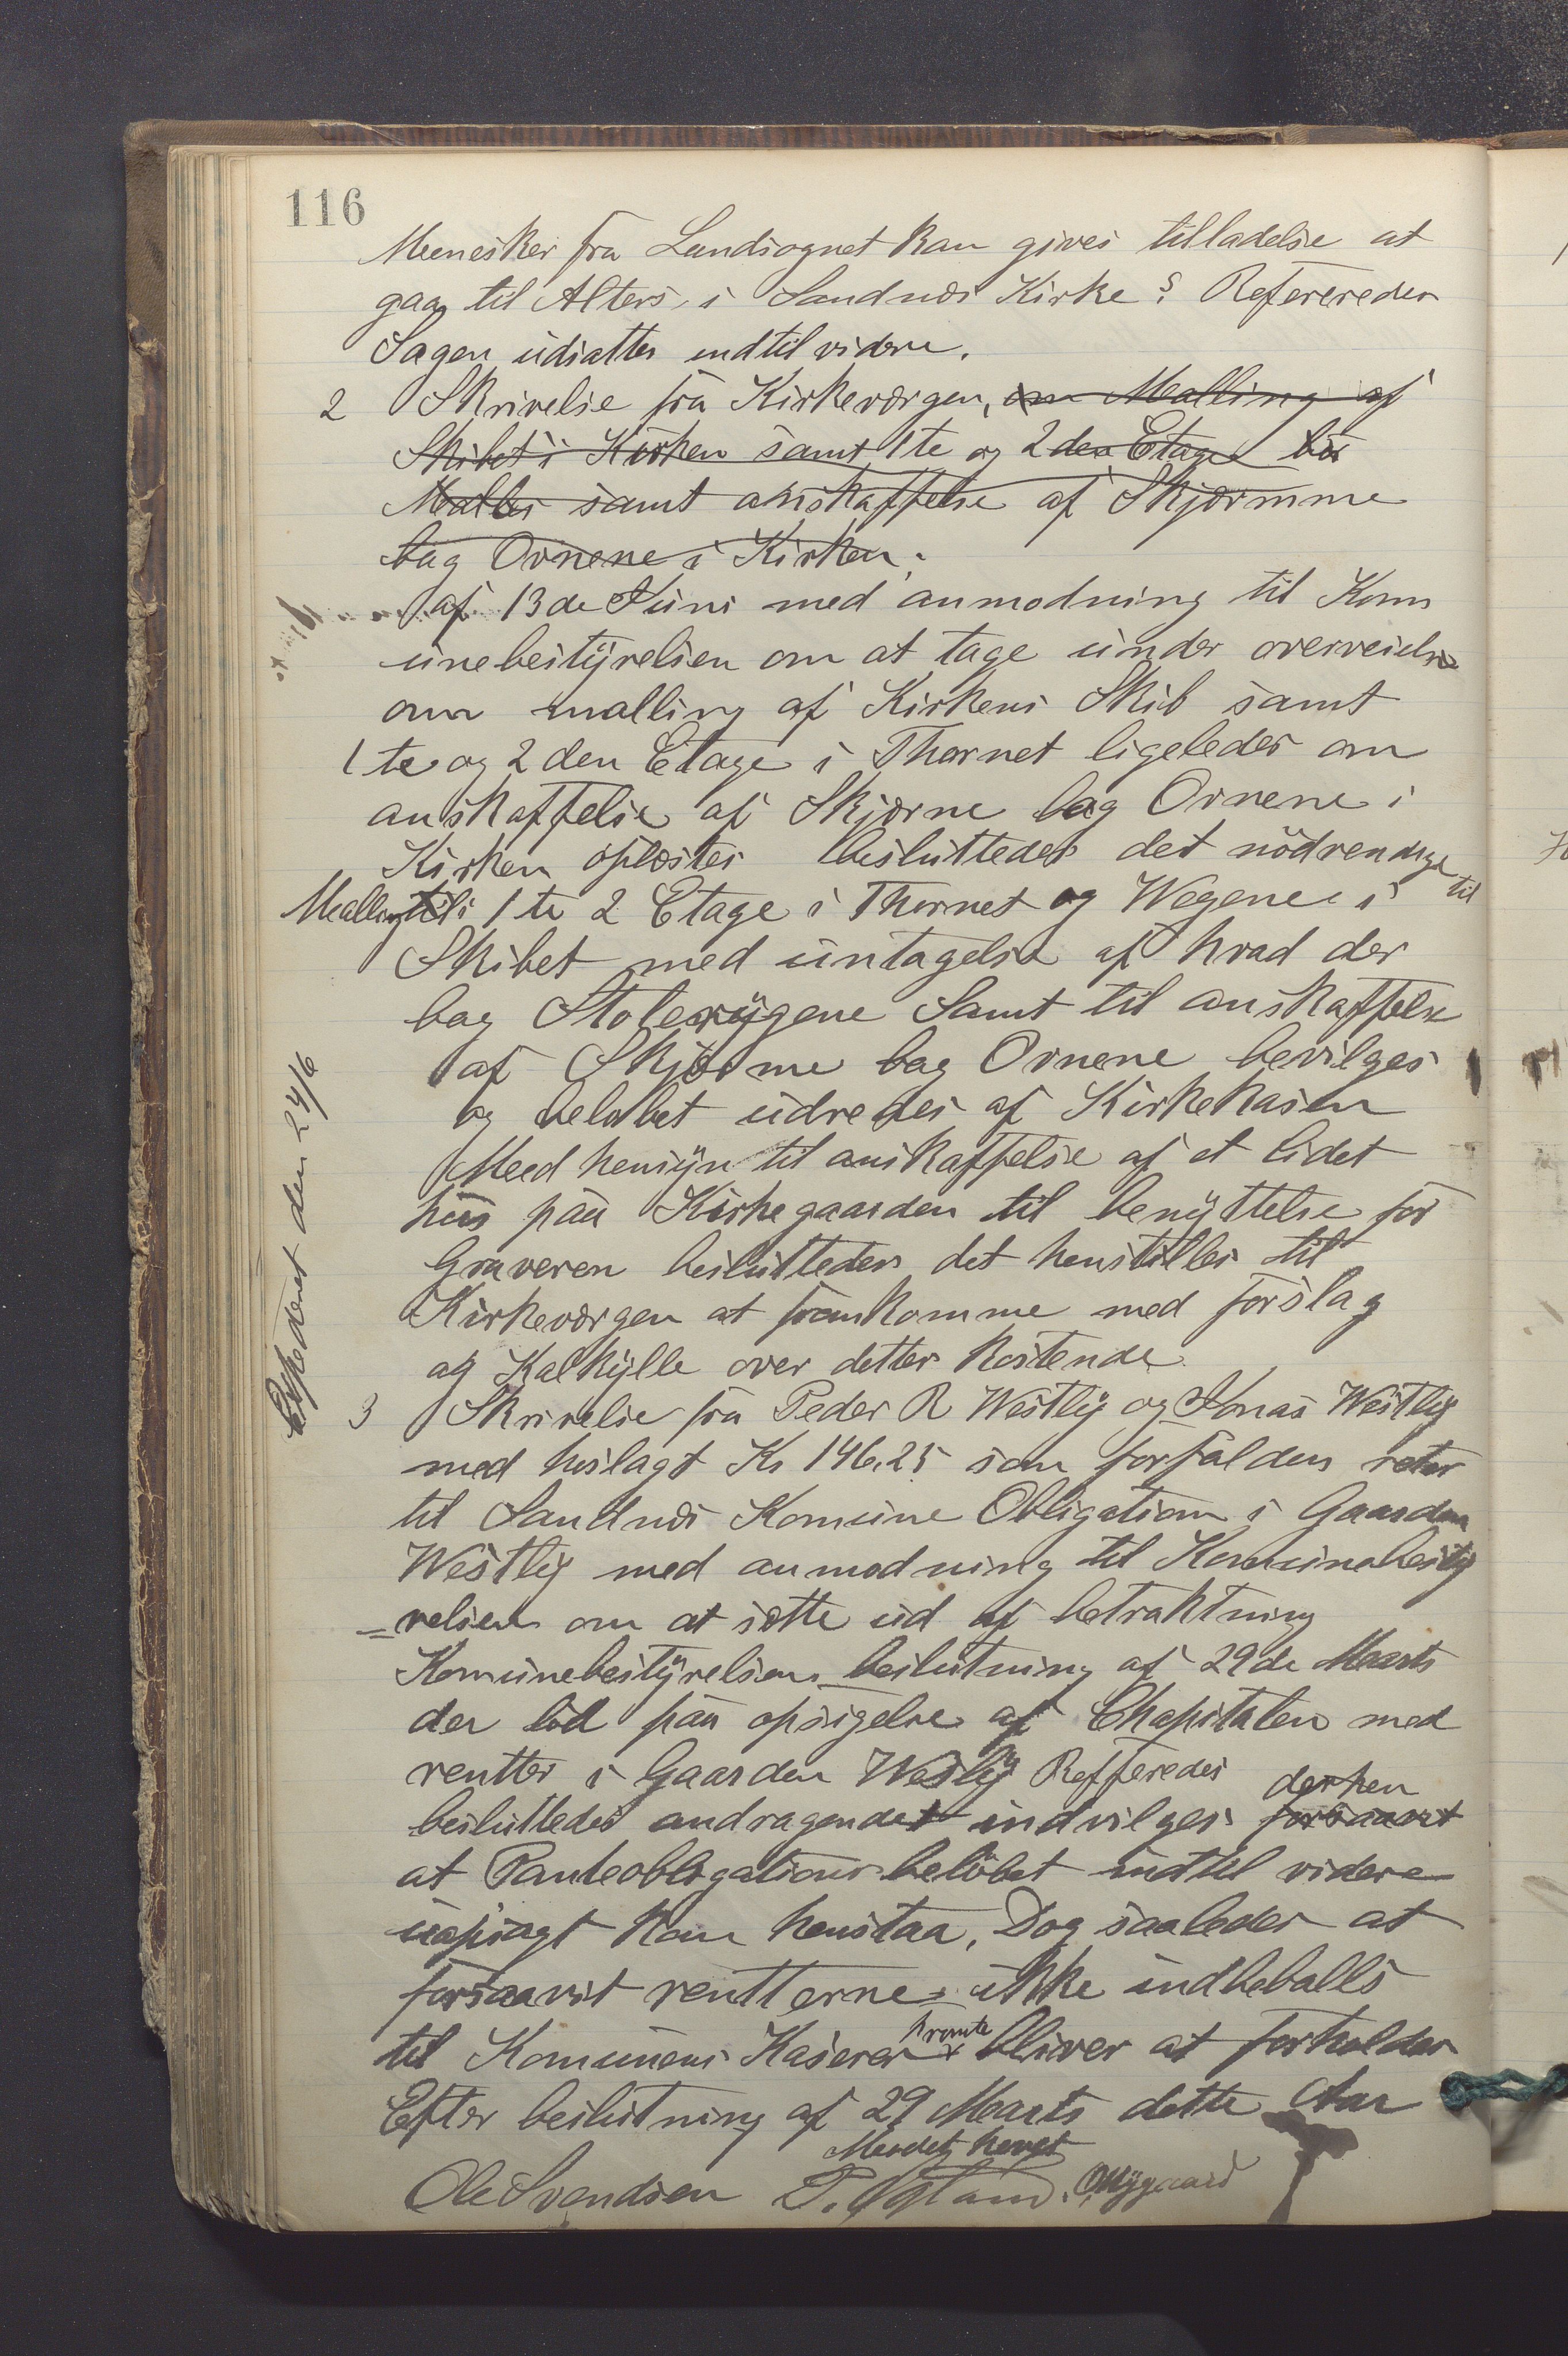 116
Menesker fra Landsognet kan gives tilladelse at
gaa til Alters i Sandnæs Kirke? Refereredes
Sagen udsattes indtil videre.
2 Skrivelse fra Kirkeværgen, om Malling af
Skibet i Kirken samt 1te og 2den Etage bør
Malles samt anskaffelse af Skjærmme
bag Ovnene i Kirken.
af 13de Juni med anmodning til Kom
unebestyrelsen om at tage under overveielse
om malling af Kirkens Skib samt
1te og 2den Etage i Thornet ligeledes om
anskaffelse af Skjærme bag Ovnene i
Kirken oplæstes besluttedes det nödvendige til
Malling til i 1te 2 Etage i Thornet og Wegene i
Skibet med untagelse af hvad der
bag Stolerygene Samt til anskaffelse
af Skjærme bag Ovnene bevilges
og beløbet udredes af Kirkekasen
Med hensyn til anskaffelse af et lidet
hus paa Kirkegaarden til benyttelse for
Graveren besluttedes det henstilles til
Kirkeværgen at fremkomme med forslag
og Kalkylle over dettes kostende.
Expederet den 24/6
3 Skrivelse fra Peder R Westly og Jonas Westly
med hoslagt Kr 146.25 som forfalden reter
til Sandnæs Komune Obligation i Gaarden
Westly med anmodning til Komunebesty
=relsen om at sætte ud af betraktning
Komunebestyrelsens beslutning af 29de Marts
der lød paa opsigelse af Chapitalen med
rentter i Gaarden Westly Reffererdes
besluttedes andragendet indvilges forsaavit derhen
at Panteobligations beløbet indtil videre
uopsagt kan henstaa, Dog saaledes at
forsaavit rentterne ikke indbetalls
til Komunens Kaserer promte bliver at forholdes
Efter beslutning af 29 Marts dette Aar
Mødet hævet
Ole Svendsen P. Ogland. O Nygaard